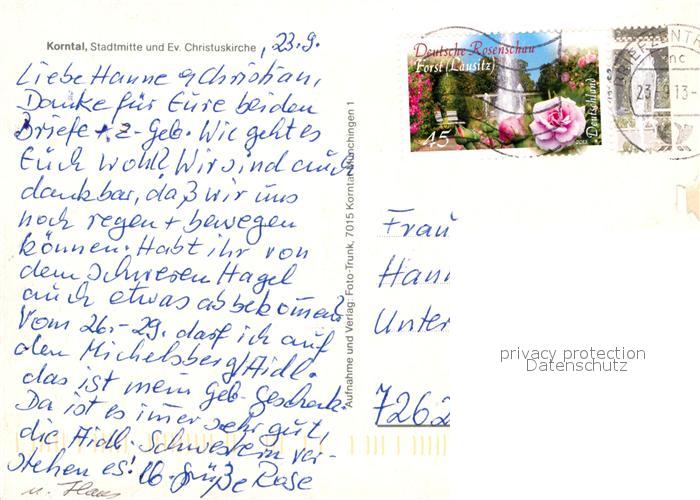 Korntal, Stadtmitte und Ev. Christuskirche, 23.9.
Liebe Hanne & Christian,
Danke für Eure beiden
Briefe + z. Geb. Wie geht es
Euch wohl? Wir sind auch
dankbar, daß wir uns
noch regen + bewegen
können. Habt ihr von
dem schweren Hagel
auch etwas abbekommen?
Vom 26.-29. darf ich auf
den Michelsberg/Aidl.
das ist mein Geb. Geschenk.
Da ist es immer sehr gut,
die Aidl. Schwestern ver-
stehen es! lb. Grüße Rose
u. Hans
Aufnahme und Verlag: Foto-Trunk, 7015 Korntal-Münchingen 1
Deutsche Rosenschau
Forst (Lausitz)
45
Deutschland
2013
BRIEFZENTR
23 9 13-
Frau
Hann
Unter
7262
privacy protection
Datenschutz